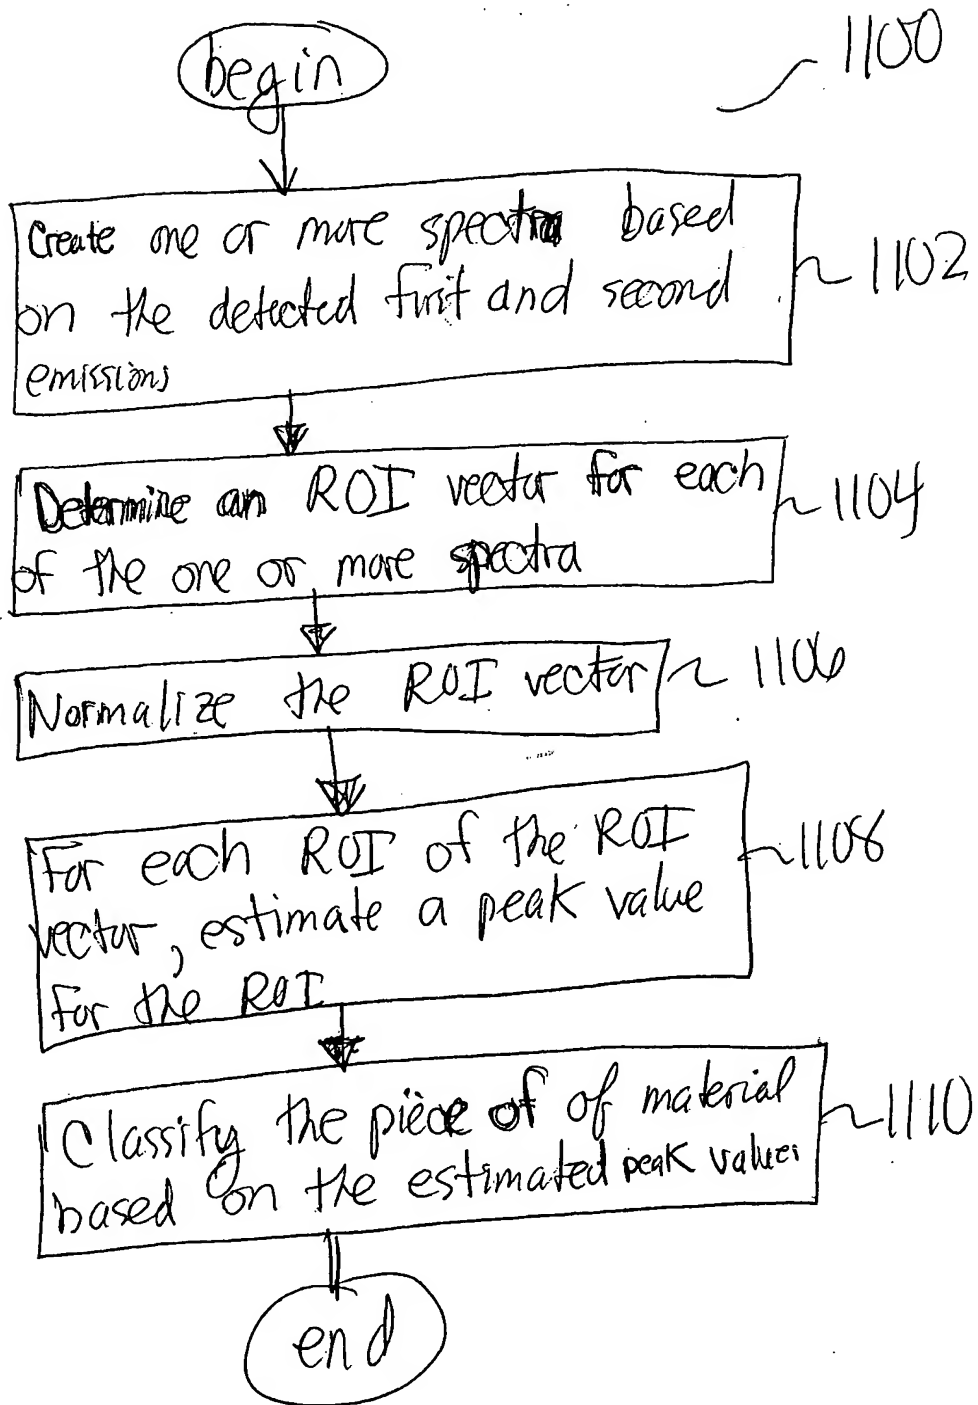 1100
begin
Create one or more spectra based
on the detected first and second
emissions
1102
Determine an ROI vector for each
of the one or more spectra
1104
Normalize the ROI vector
1106
For each ROI of the ROI
vector, estimate a peak value
for the ROI
1108
Classify the piece of of material
based on the estimated peak values
1110
end